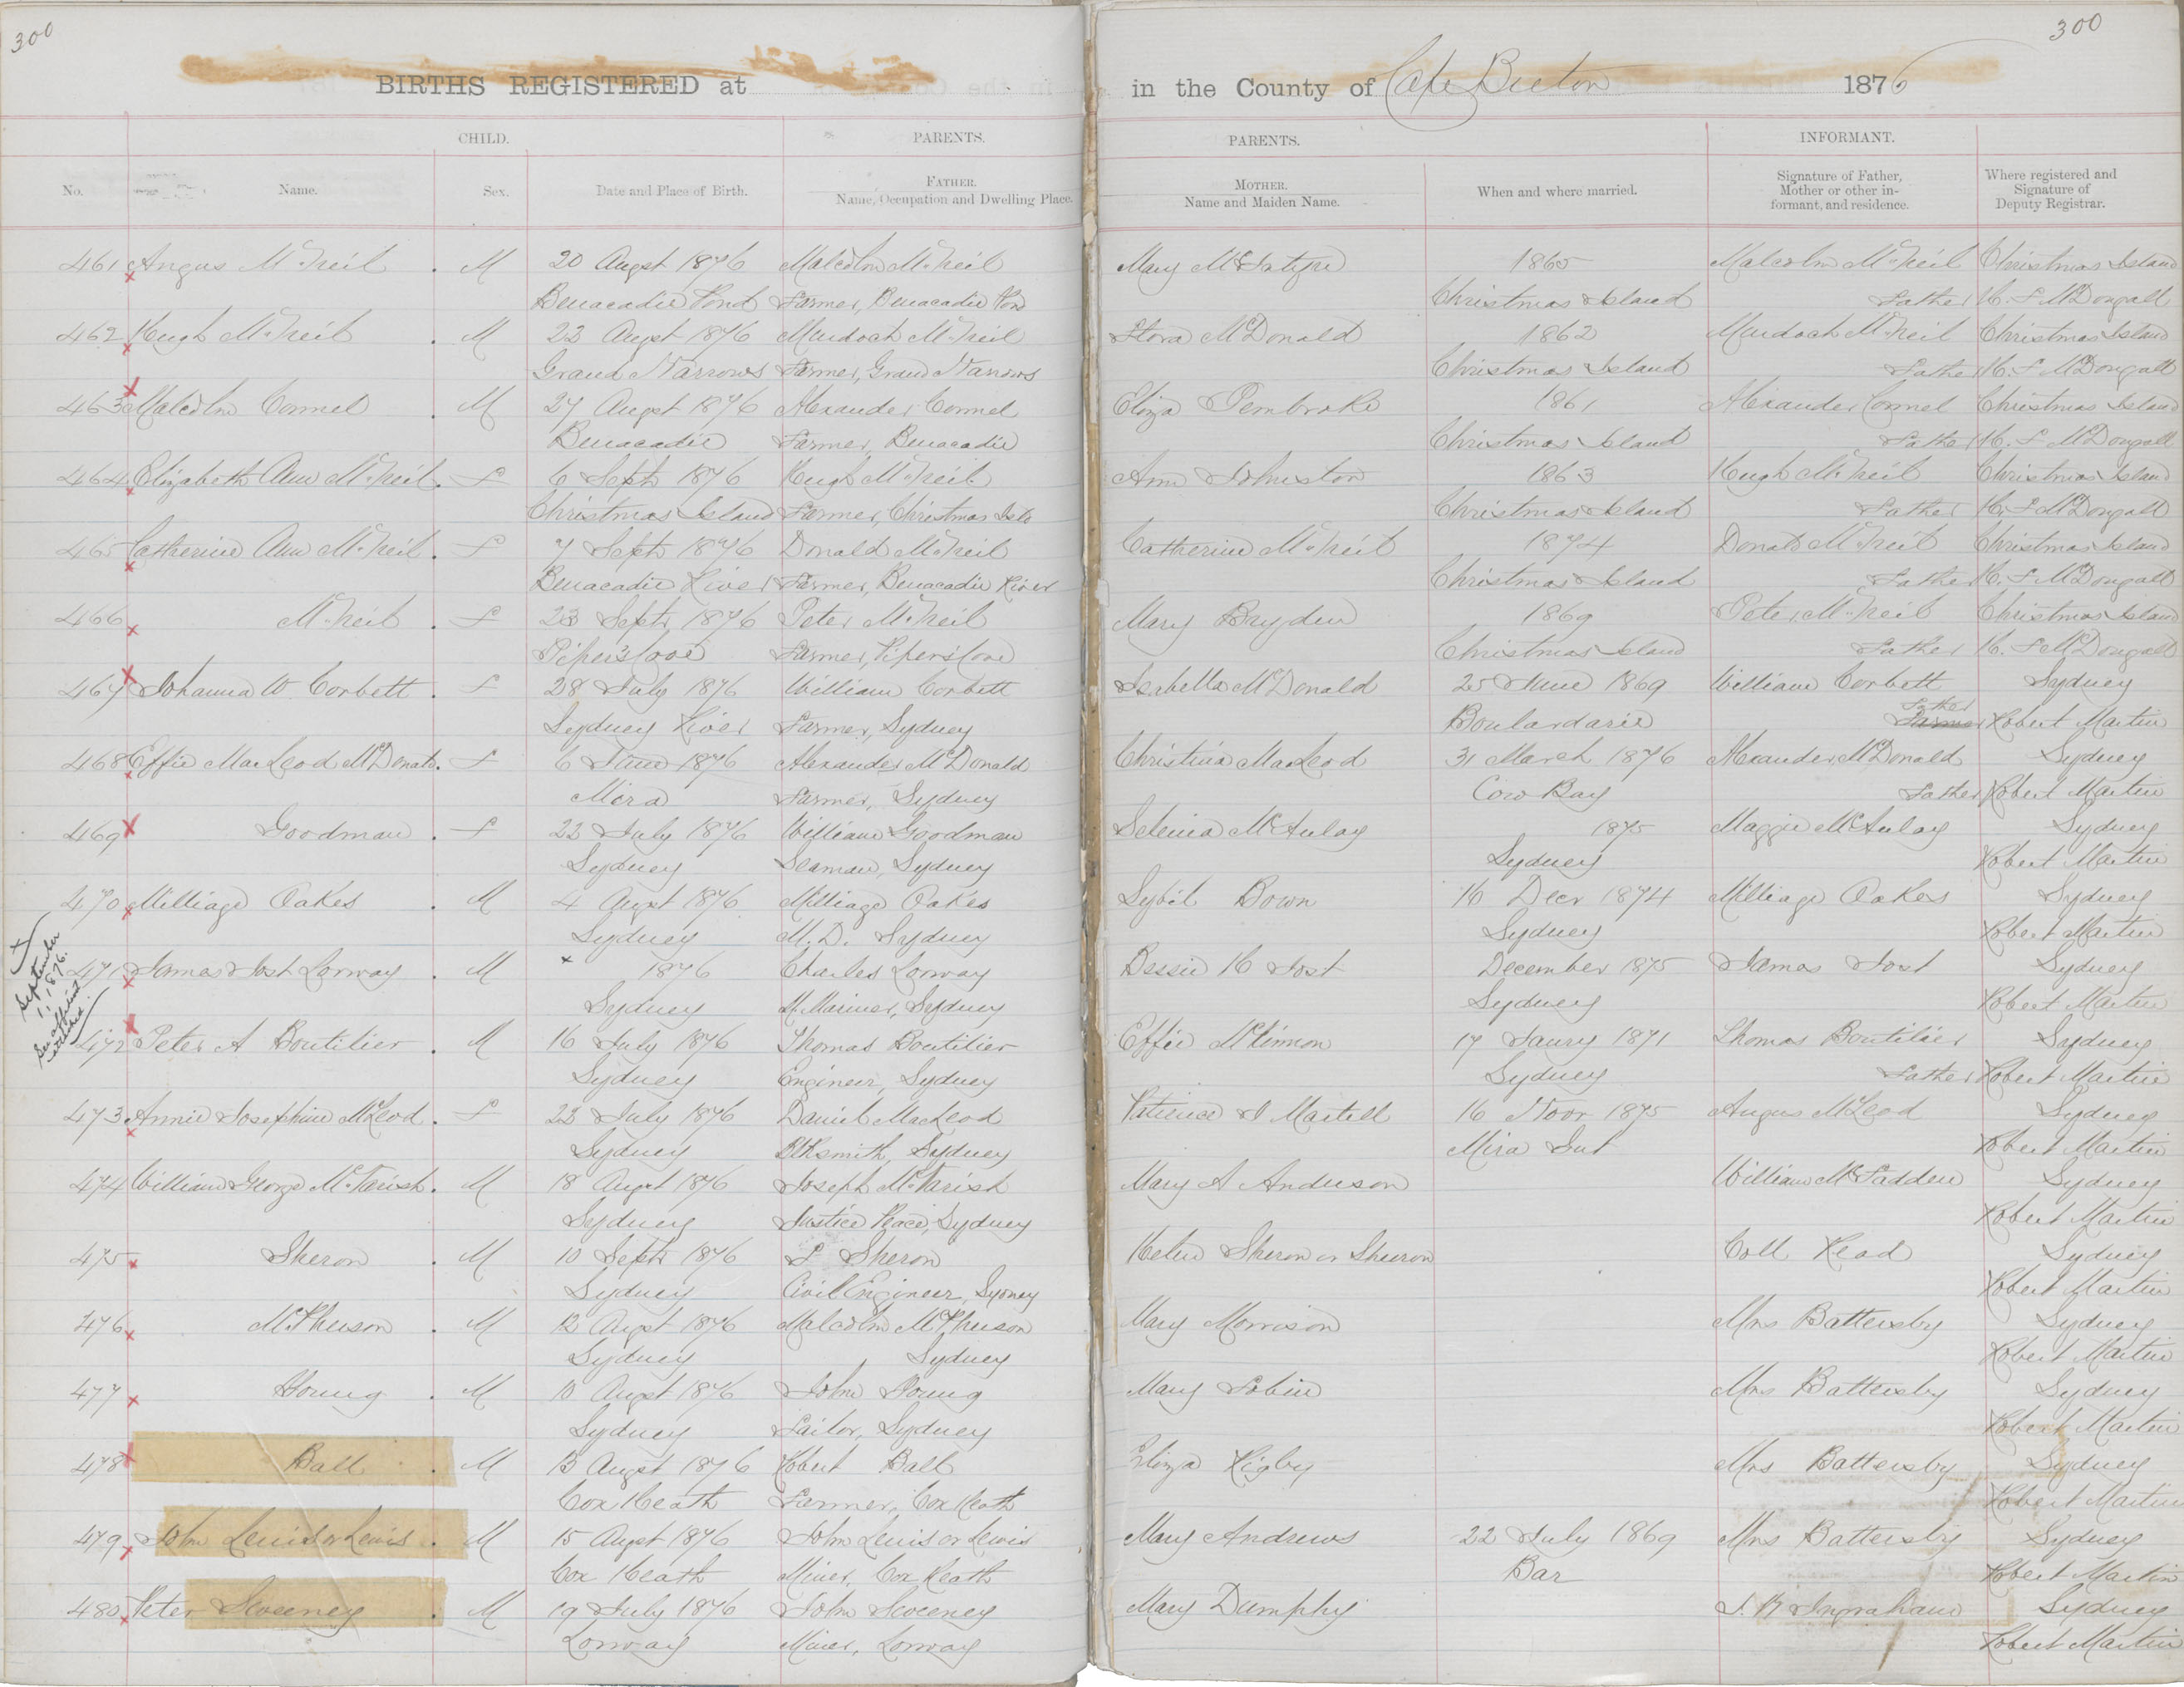 300
300
BIRTHS REGISTERED at in the County of Cape Breton 1876
CHILD. PARENTS. PARENTS. INFORMANT.
No. Name. Sex. Date and Place of Birth. FATHER. Name, Occupation and Dwelling Place. MOTHER. Name and Maiden Name. When and where married. Signature of Father, Mother or other informant, and residence. Where registered and Signature of Deputy Registrar.
461 Angus McNeil M 20 Augst 1876 Malcolm McNeil Mary McIntyre 1865 Malcolm McNeil Christmas Island
Benacadie Pond Farmer, Benacadie Pond Christmas Island Father H. F McDougall
462 Hugh McNeil M 22 Augst 1876 Murdoch McNeil Flora McDonald 1862 Murdoch McNeil Christmas Island
Grand Narrows Farmer, Grand Narrows Christmas Island Father H. F McDougall
463 Malcolm Connel M 27 Augst 1876 Alexander Connel Eliza Pembroke 1861 Alexander Connel Christmas Island
Benacadie Farmer, Benacadie Christmas Island Father H. F McDougall
464 Elizabeth Ann McNeil F 6 Septr 1876 Hugh McNeil Ann Johnston 1863 Hugh McNeil Christmas Island
Christmas Island Farmer, Christmas Isld Christmas Island Father H. F McDougall
465 Catherine Ann McNeil F 7 Septr 1876 Donald McNeil Catherine McNeil 1874 Donald McNeil Christmas Island
Benacadie River Farmer, Benacadie River Christmas Island Father H. F McDougall
466 McNeil F 23 Septr 1876 Peter McNeil Mary Bryden 1869 Peter McNeil Christmas Island
Piper's Cove Farmer, Piper's Cove Christmas Island Father H. F McDougall
467 Johanna W. Corbett F 28 July 1876 William Corbett Isabella McDonald 25 June 1869 William Corbett Sydney
Sydney River Farmer, Sydney Boulardarie Farmer Father Robert Martin
468 Effie MacLeod McDonald F 6 June 1876 Alexander McDonald Christina MacLeod 31 March 1876 Alexander McDonald Sydney
Mira Farmer, Sydney Cow Bay Father Robert Martin
469 Goodman F 22 July 1876 William Goodman Selenia McAulay 1875 Maggie McAulay Sydney
Sydney Seaman, Sydney Sydney Robert Martin
470 Milliage Oakes M 4 Augst 1876 Milliage Oakes Sybil Bown 16 Decr 1874 Milliage Oakes Sydney
Sydney M.D. Sydney Sydney Robert Martin
x September 1, 1876. See affidavit attached.
471 James Jost Lorway M x 1876 Charles Lorway Bessie H Jost December 1875 James Jost Sydney
Sydney M. Mariner, Sydney Sydney Robert Martin
472 Peter A Boutilier M 16 July 1876 Thomas Boutilier Effie McKinnon 17 Jany 1871 Thomas Boutilier Sydney
Sydney Engineer, Sydney Sydney Father Robert Martin
473 Annie Josephine McLeod F 22 July 1876 Daniel MacLeod Patience I Martell 16 Novr 1875 Angus McLeod Sydney
Sydney Blksmith, Sydney Mira Gut Robert Martin
474 William George McTarish M 18 Augst 1876 Joseph McTarish Mary A Anderson William McFadden Sydney
Sydney Justice Peace, Sydney Robert Martin
475 Sheron M 10 Septr 1876 L Sheron Helen Sheron or Sheeron Coll Read Sydney
Sydney Civil Engineer, Sydney Robert Martin
476 McPherson M 12 Augst 1876 Malcolm McPherson Mary Morrison Mrs Battersby Sydney
Sydney Sydney Robert Martin
477 Young M 10 Augst 1876 John Young Mary Tobin Mrs Battersby Sydney
Sydney Tailor, Sydney Robert Martin
478 Ball M 13 Augst 1876 Robert Ball Eliza Rigby Mrs Battersby Sydney
Cox Heath Farmer, Cox Heath Robert Martin
479 John Lenis or Lewis M 15 Augst 1876 John Lenis or Lewis Mary Andrews 22 July 1869 Mrs Battersby Sydney
Cox Heath Miner, Cox Heath Bar Robert Martin
480 Peter Sweeney M 19 July 1876 John Sweeney Mary Dumphy J. H Ingraham Sydney
Lorway Miner, Lorway Robert Martin